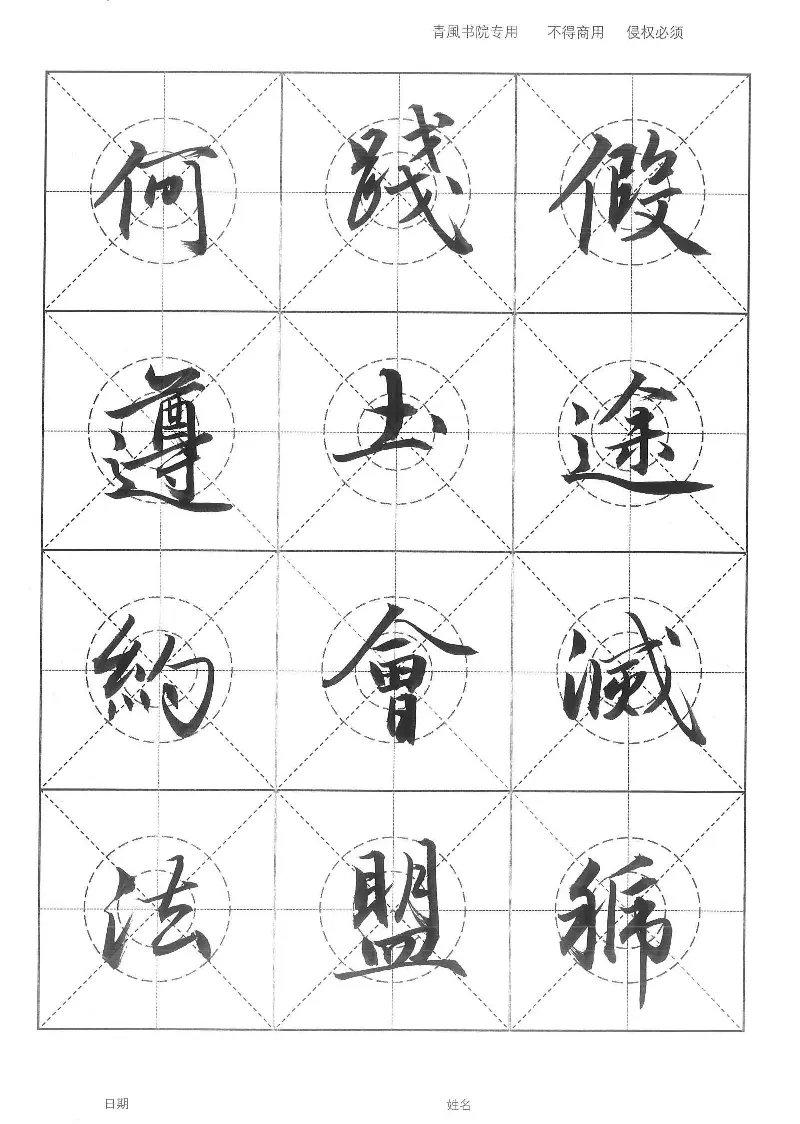 青風书院专用 不得商用 侵权必须
假途滅虢
踐土會盟
何遵約法
日期 姓名